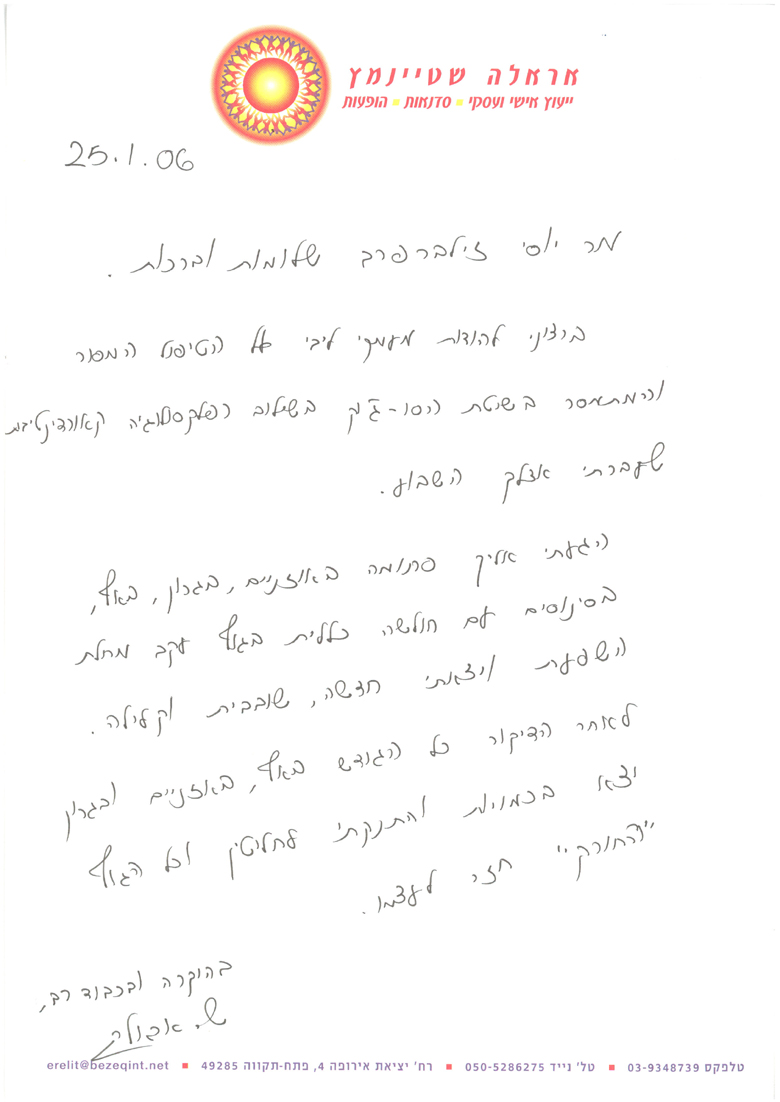 אראלה שטיינמץ
ייעוץ אישי ועסקי ▪ סדנאות ▪ הופעות
25.1.06
מר יוסי זילברפרב שלומות וברכות.
ברצוני להודות מעמקי ליבי על הטיפול המסור
והמתמסר בשיטת הסו-ג'וק בשילוב רפלקסולוגיה קאורדינטיבית
שעברתי אצלך השבוע.
הגעתי אליך סתומה באוזניים, בגרון, באף,
בסינוסים עם חולשה כללית בגוף עקב מחלת
השפעת ויצאתי חדשה, שובבית וקלילה.
לאחר הדיקור כל הגודש באף, באוזניים ובגרון
יצא בכמויות והתנקתי לחלוטין וכל הגוף
"החורק" חזר לעצמו.
בהוקרה ובכבוד רב,
ש. אראלה
erelit@bezeqint.net ▪ רח' יציאת אירופה 4, פתח-תקווה 49285 ▪ טל' נייד 050-5286275 ▪ טלפקס 03-9348739